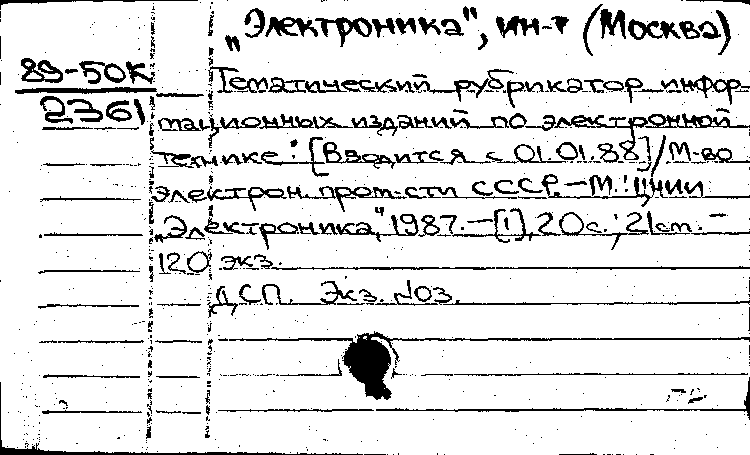 „Электроника", ин-т (Москва)
89-50К
2361
Тематический рубрикатор инфор-
мационных изданий по электронной
технике: [Вводится с 01.01.88]/М-во
электрон. пром-сти СССР.—М.: ЦНИИ
„Электроника," 1987.—[1], 20 с.; 21 см.—
120 экз.
ДСП. Экз. №03.